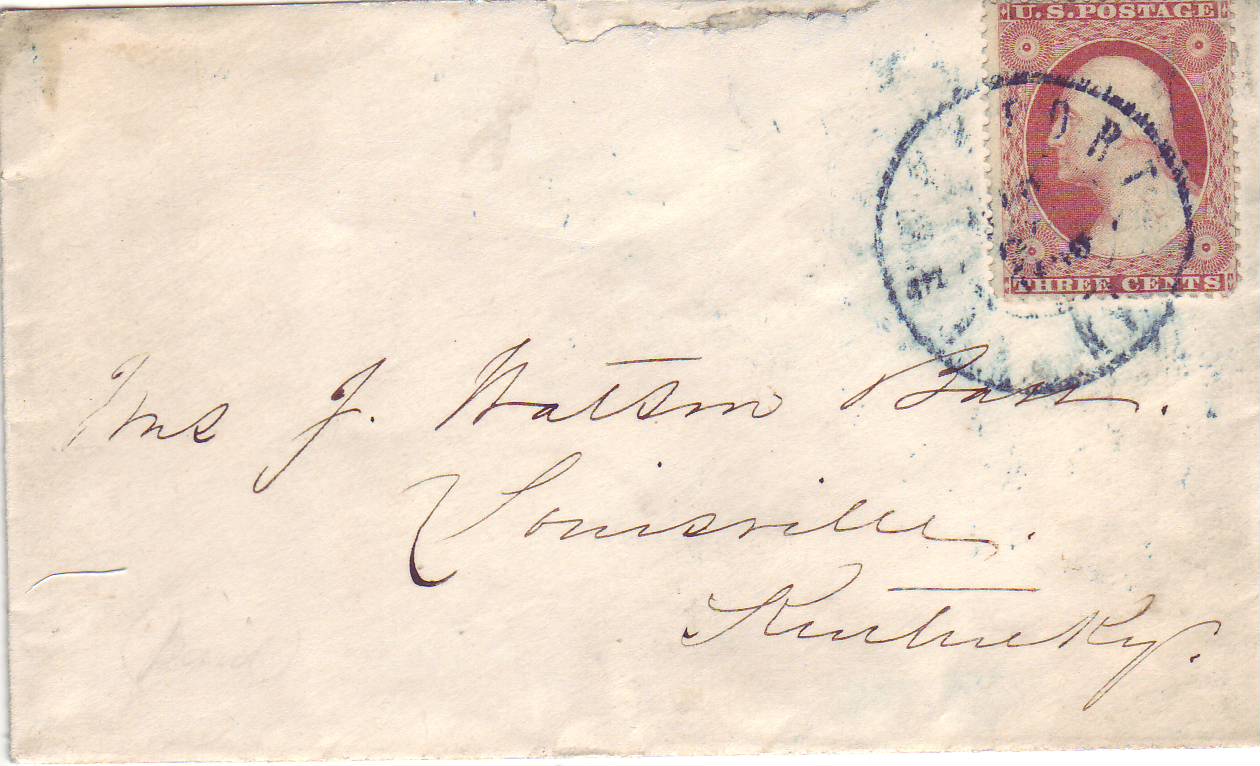 U.S. POSTAGE
THREE CENTS
Mrs J. Watson Barr.
Louisville.
Kentucky.